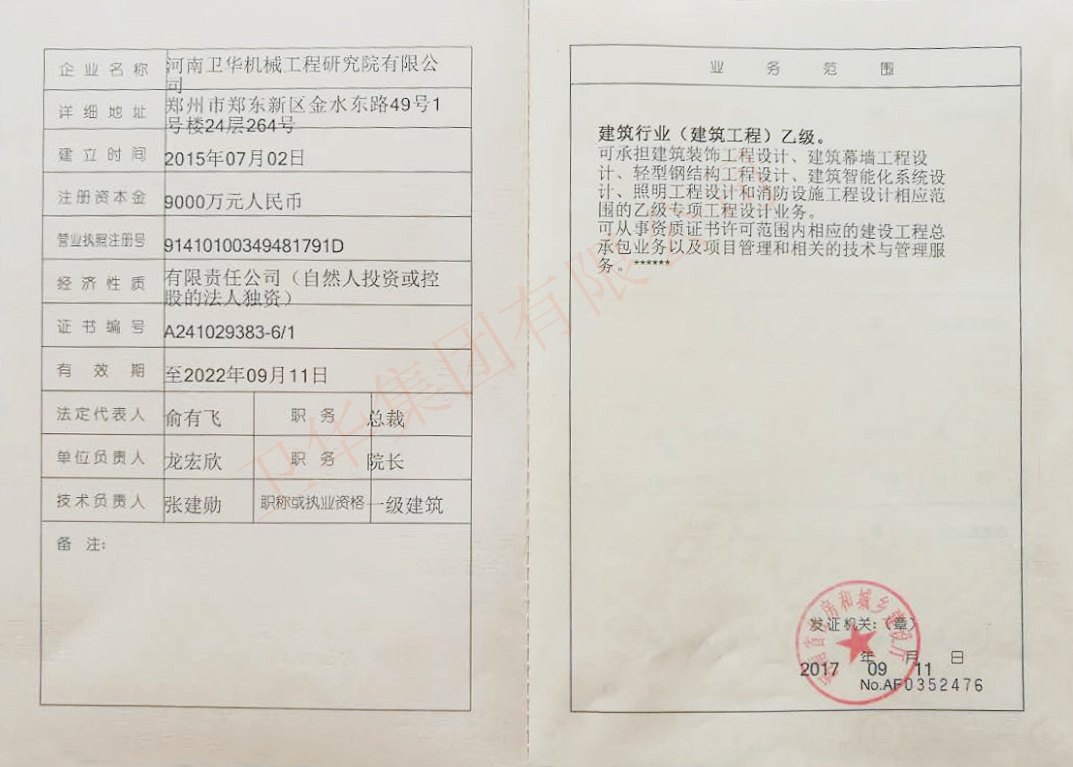 企业名称 河南卫华机械工程研究院有限公
司
详细地址 郑州市郑东新区金水东路49号1
号楼24层264号
建立时间 2015年07月02日
注册资本金 9000万元人民币
营业执照注册号 91410100349481791D
经济性质 有限责任公司（自然人投资或控
股的法人独资）
证书编号 A241029383-6/1
有效期 至2022年09月11日
法定代表人 俞有飞 职务 总裁
单位负责人 龙宏欣 职务 院长
技术负责人 张建勋 职称或执业资格 一级建筑
备注:
业务范围
建筑行业（建筑工程）乙级。
可承担建筑装饰工程设计、建筑幕墙工程设
计、轻型钢结构工程设计、建筑智能化系统设
计、照明工程设计和消防设施工程设计相应范
围的乙级专项工程设计业务。
可从事资质证书许可范围内相应的建设工程总
承包业务以及项目管理和相关的技术与管理服
务。******
发证机关:（章）
2017年09月11日
No.AF0352476
卫华集团有限
房和城乡建设厅